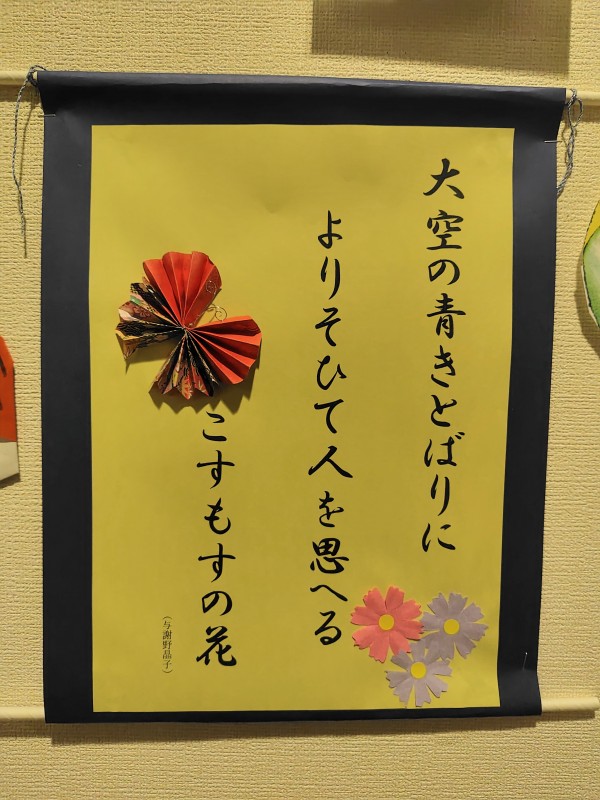 大空の青きとばりに
よりそひて人を思へる
こすもすの花
（与謝野晶子）